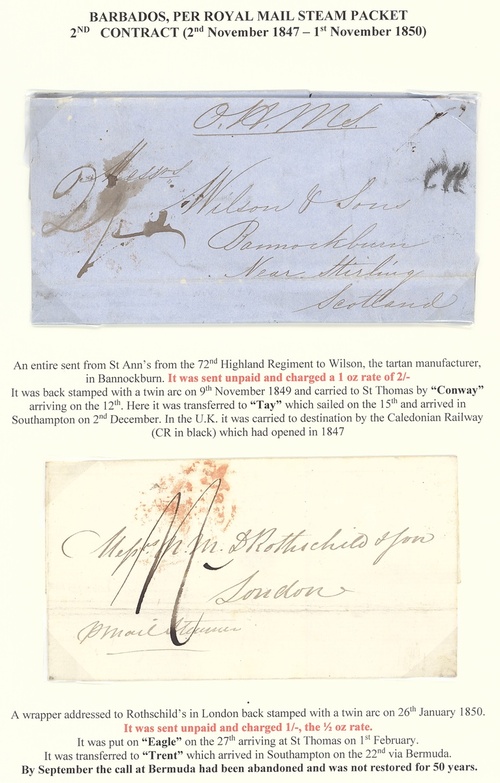 BARBADOS, PER ROYAL MAIL STEAM PACKET
2ND CONTRACT (2nd November 1847 – 1st November 1850)
O.H.M.S.
Messrs
2/-
CR
Wilson & Sons
Bannockburn
Near Stirling
Scotland
An entire sent from St Ann's from the 72nd Highland Regiment to Wilson, the tartan manufacturer,
in Bannockburn. It was sent unpaid and charged a 1 oz rate of 2/-
It was back stamped with a twin arc on 9th November 1849 and carried to St Thomas by “Conway”
arriving on the 12th. Here it was transferred to “Tay” which sailed on the 15th and arrived in
Southampton on 2nd December. In the U.K. it was carried to destination by the Caledonian Railway
(CR in black) which had opened in 1847
Messrs N. M. D Rothschild & Son
London
p mail steamer
A wrapper addressed to Rothschild's in London back stamped with a twin arc on 26th January 1850.
It was sent unpaid and charged 1/-, the ½ oz rate.
It was put on “Eagle” on the 27th arriving at St Thomas on 1st February.
It was transferred to “Trent” which arrived in Southampton on the 22nd via Bermuda.
By September the call at Bermuda had been abandoned and was not restored for 50 years.